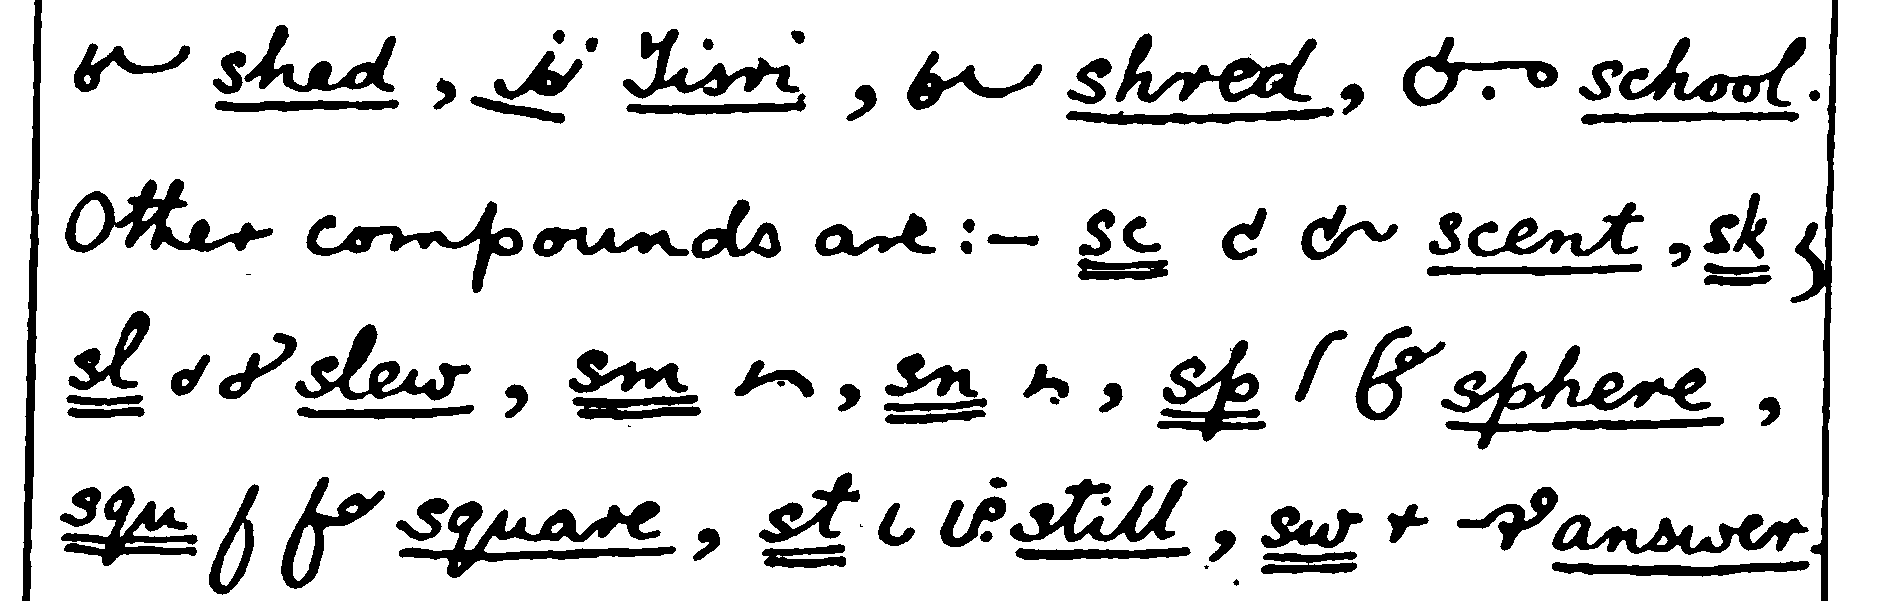 shed, Tisri, shred, school.
Other compounds are:- sc scent, sk
sl slew, sm, sn, sp sphere,
squ square, st still, sw answer.